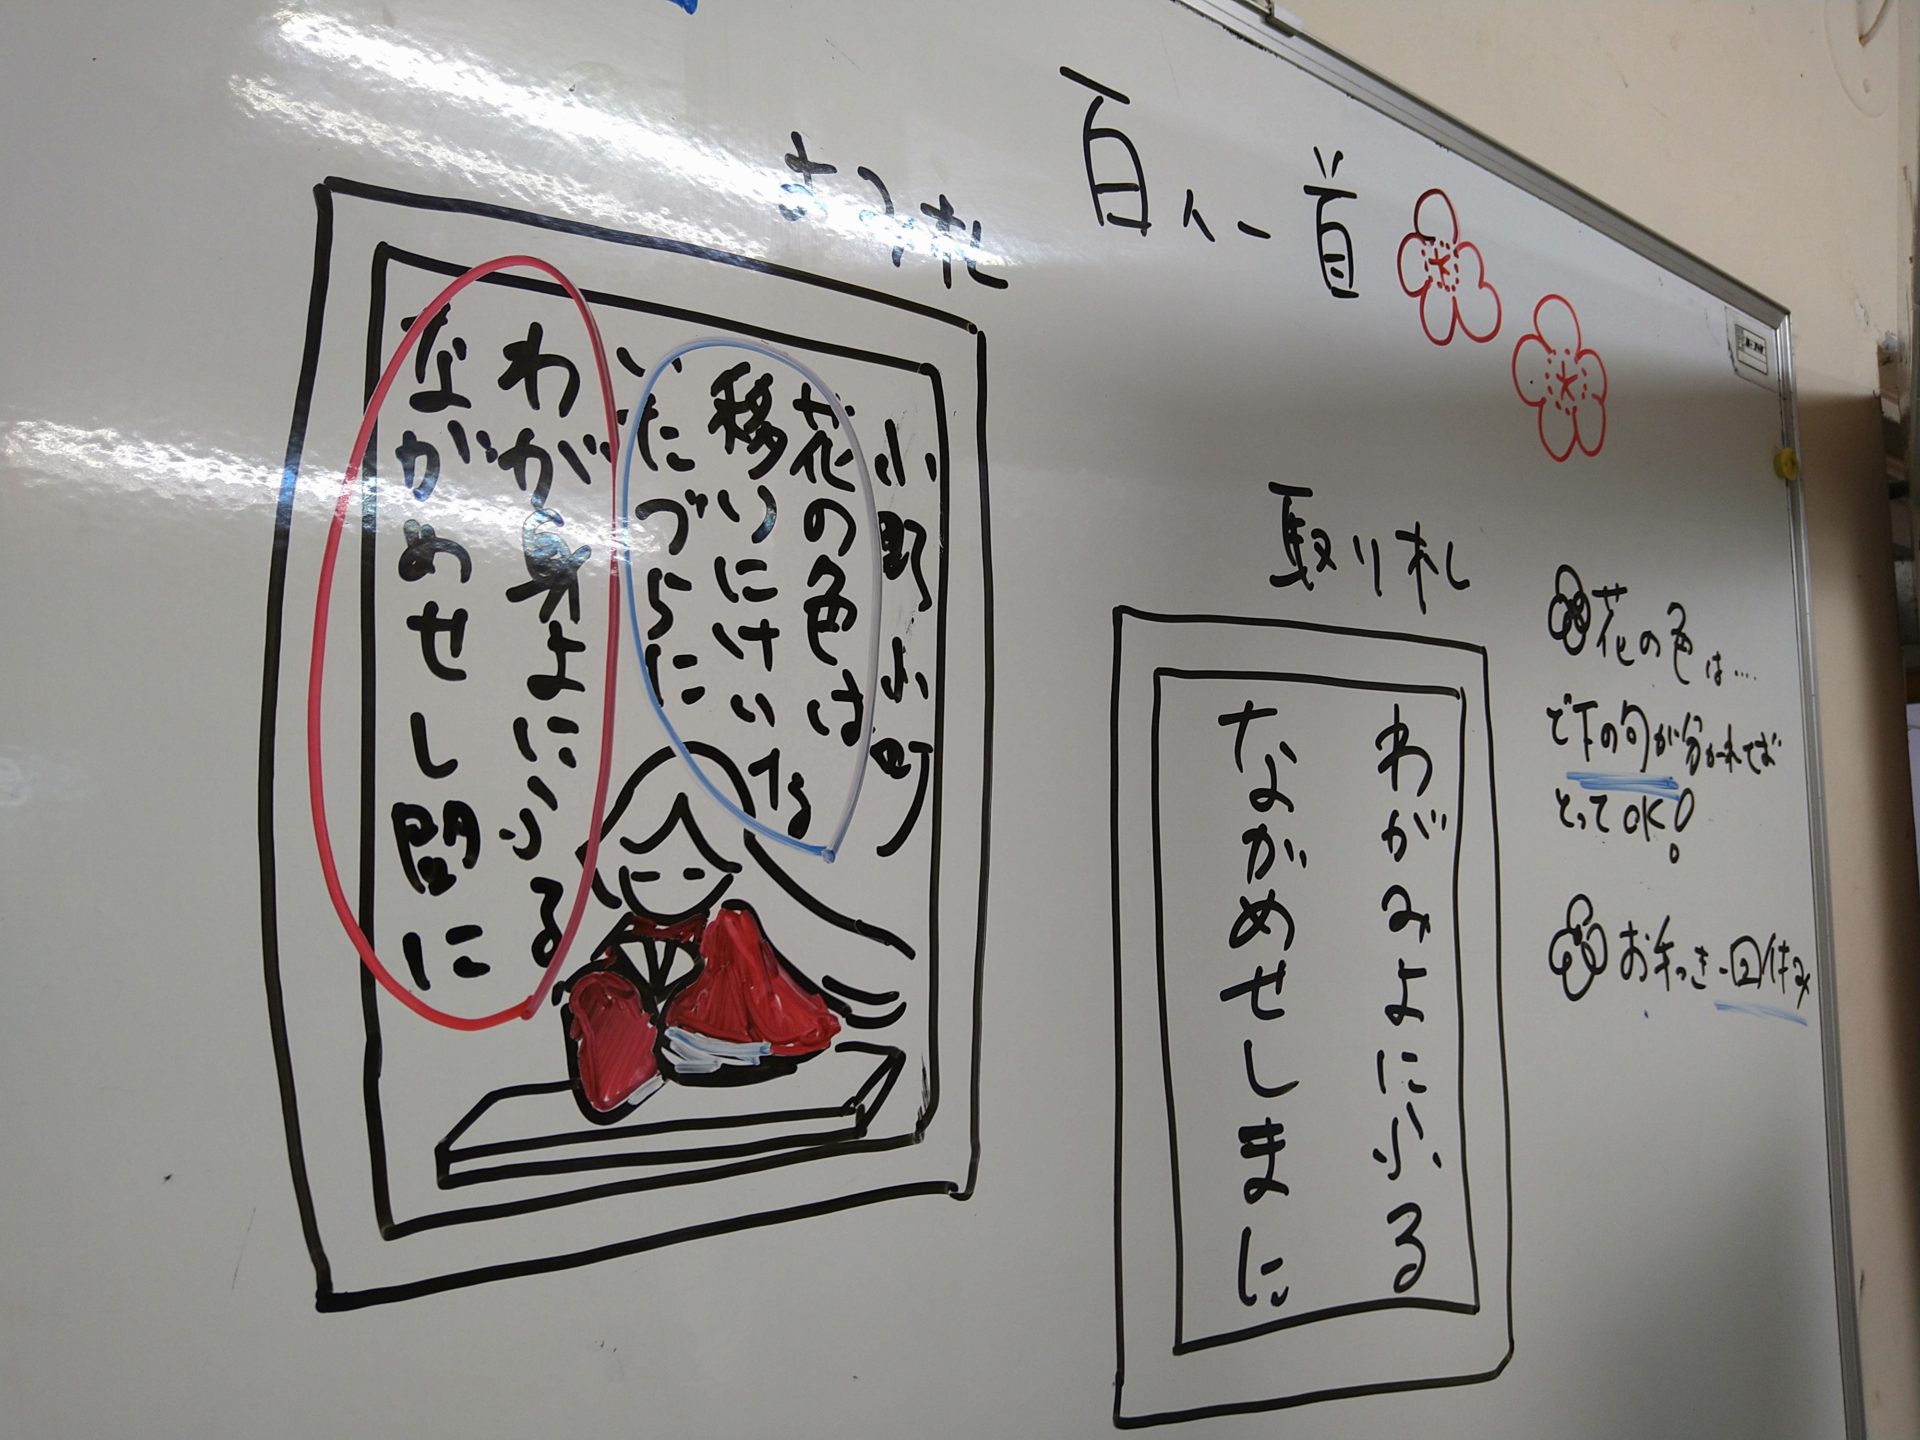 百人一首
よみ札
小野小町
花の色は
移りにけりな
いたづらに
わが身よにふる
ながめせし間に
取り札
わがみよにふる
ながめせしまに
花の色は…
で下の句が分かれてば
とってOK!
お手つき一回休み